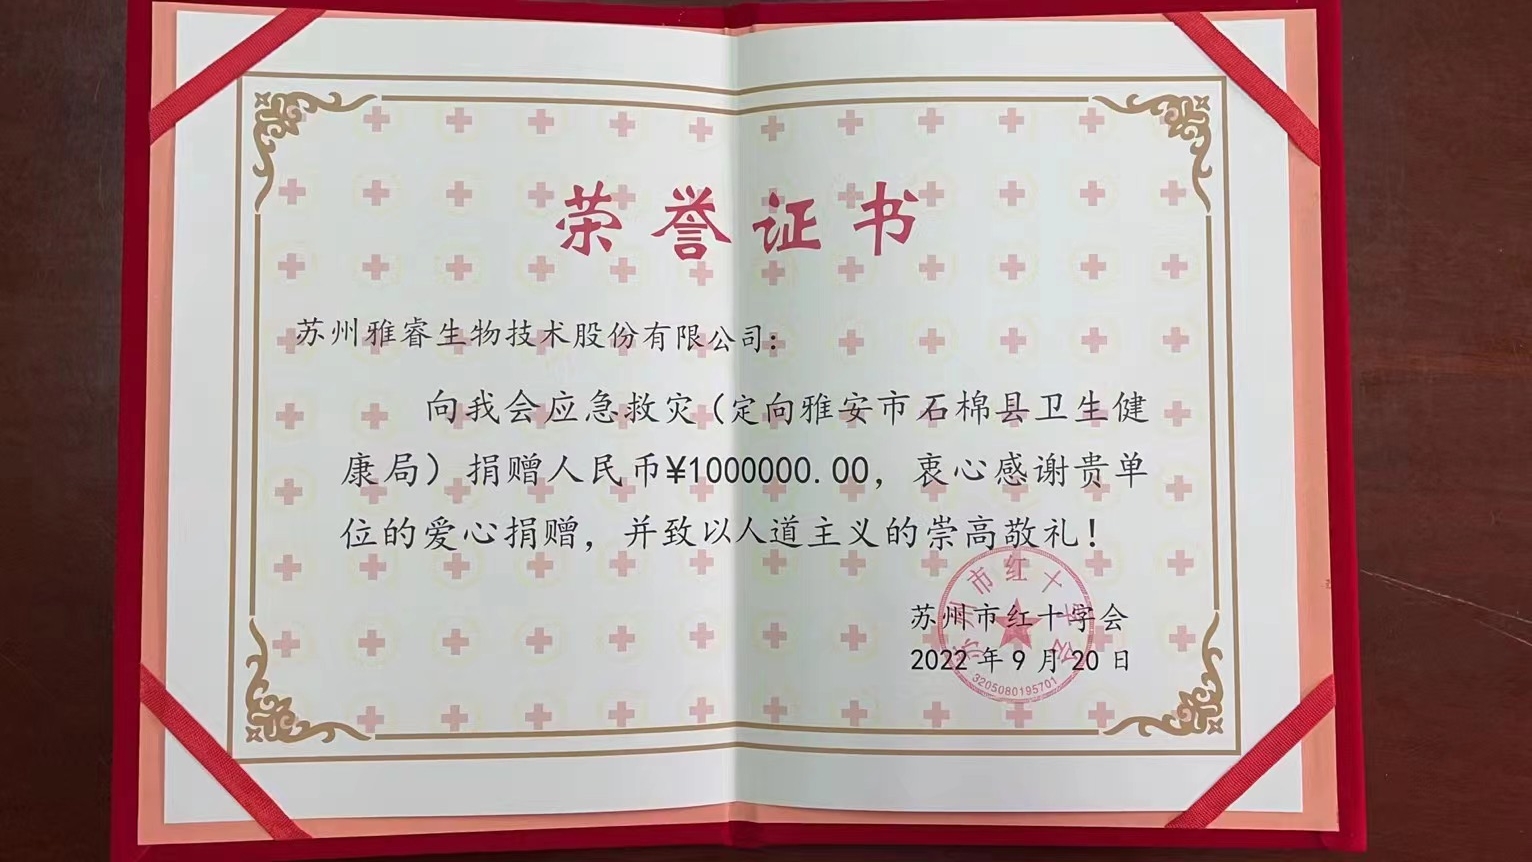 荣誉证书
苏州雅睿生物技术股份有限公司：
向我会应急救灾（定向雅安市石棉县卫生健
康局）捐赠人民币¥1000000.00，衷心感谢贵单
位的爱心捐赠，并致以人道主义的崇高敬礼！
苏州市红十字会
2022 年 9 月 20 日
苏州市红十字会
3205080195701